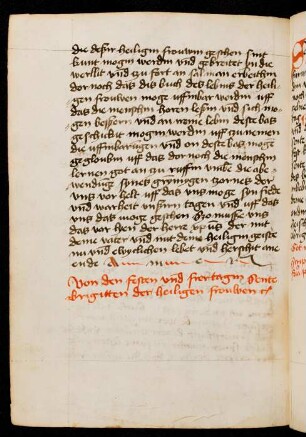 die deser heiligen frouwen geschen sint
kunt mogin werdin und gebreitet in die
werllt und zu fort an sal man erbeithin
dor noch das dis buch des lebins der heili
gen frouwen moge uffinbar werdin uff
das die menschin horen lesin und sich mo
gen bessern und an reine lebin deste bas
geschickt mogin werdin uff zu nemen
die uffinbarugen und on deste bas moge
gegloubin uff das dor noch die menschin
lernen got an zu ruffin umbe die abe
wendunge synes grymmigen zornes der
uns vor helt uff das uns moge sin frede
und warheit in unsirn tagen und uff das
uns das moge geschen So musse uns
das vor lien der herre xpus der mit
deme vater und mit dem heiligen geiste
nu und ewyclichen lebet und herschit ane
ende A m e n
Von den festen und fiertagin Sente
Brigitten der heiligen frouwen etc